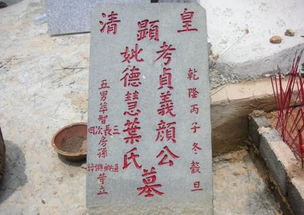 皇清
乾隆丙子冬穀旦
顯
考貞義顏公
妣德慧葉氏
墓
五男華智